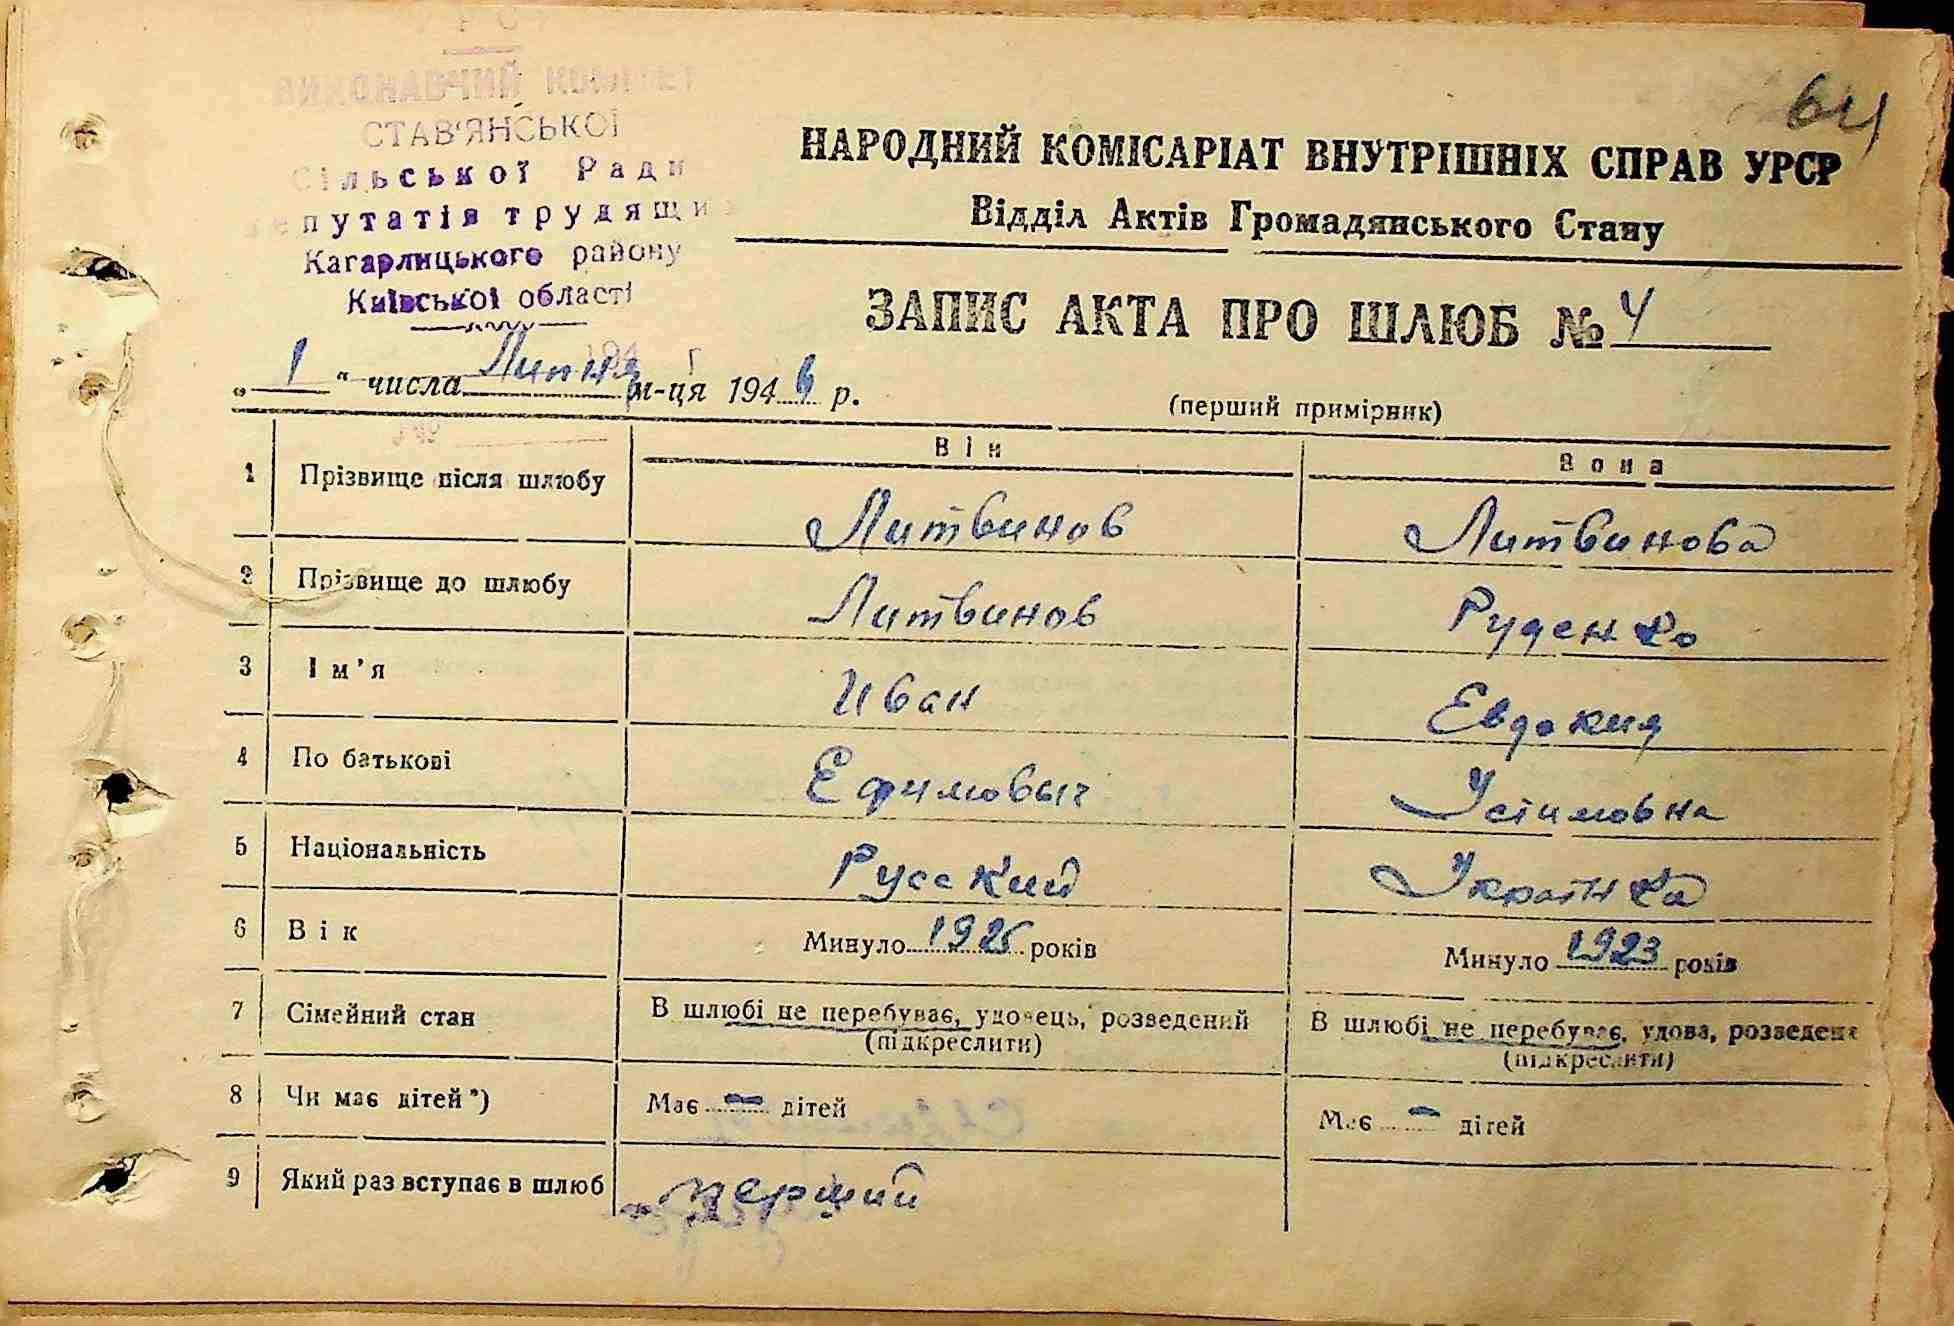 64
ВИКОНАВЧИЙ КОМІТЕТ
СТАВ'ЯНСЬКОЇ
Сільської Ради
депутатів трудящих
Кагарлицького району
Київської області
НАРОДНИЙ КОМІСАРІАТ ВНУТРІШНІХ СПРАВ УРСР
Відділ Актів Громадянського Стану
ЗАПИС АКТА ПРО ШЛЮБ № 4
„ 1 “ числа Липня м-ця 1946 р.
(перший примірник)
Він Вона
1 Прізвище після шлюбу Литвинов Литвинова
2 Прізвище до шлюбу Литвинов Руденко
3 Ім'я Иван Евдокия
4 По батькові Ефимовыч Устимовна
5 Національність Русский Українка
6 Вік Минуло 1925 років Минуло 1923 років
7 Сімейний стан В шлюбі не перебуває, удовець, розведений В шлюбі не перебуває, удова, розведена
(підкреслити) (підкреслити)
8 Чи має дітей*) Має — дітей Має — дітей
9 Який раз вступає в шлюб перший